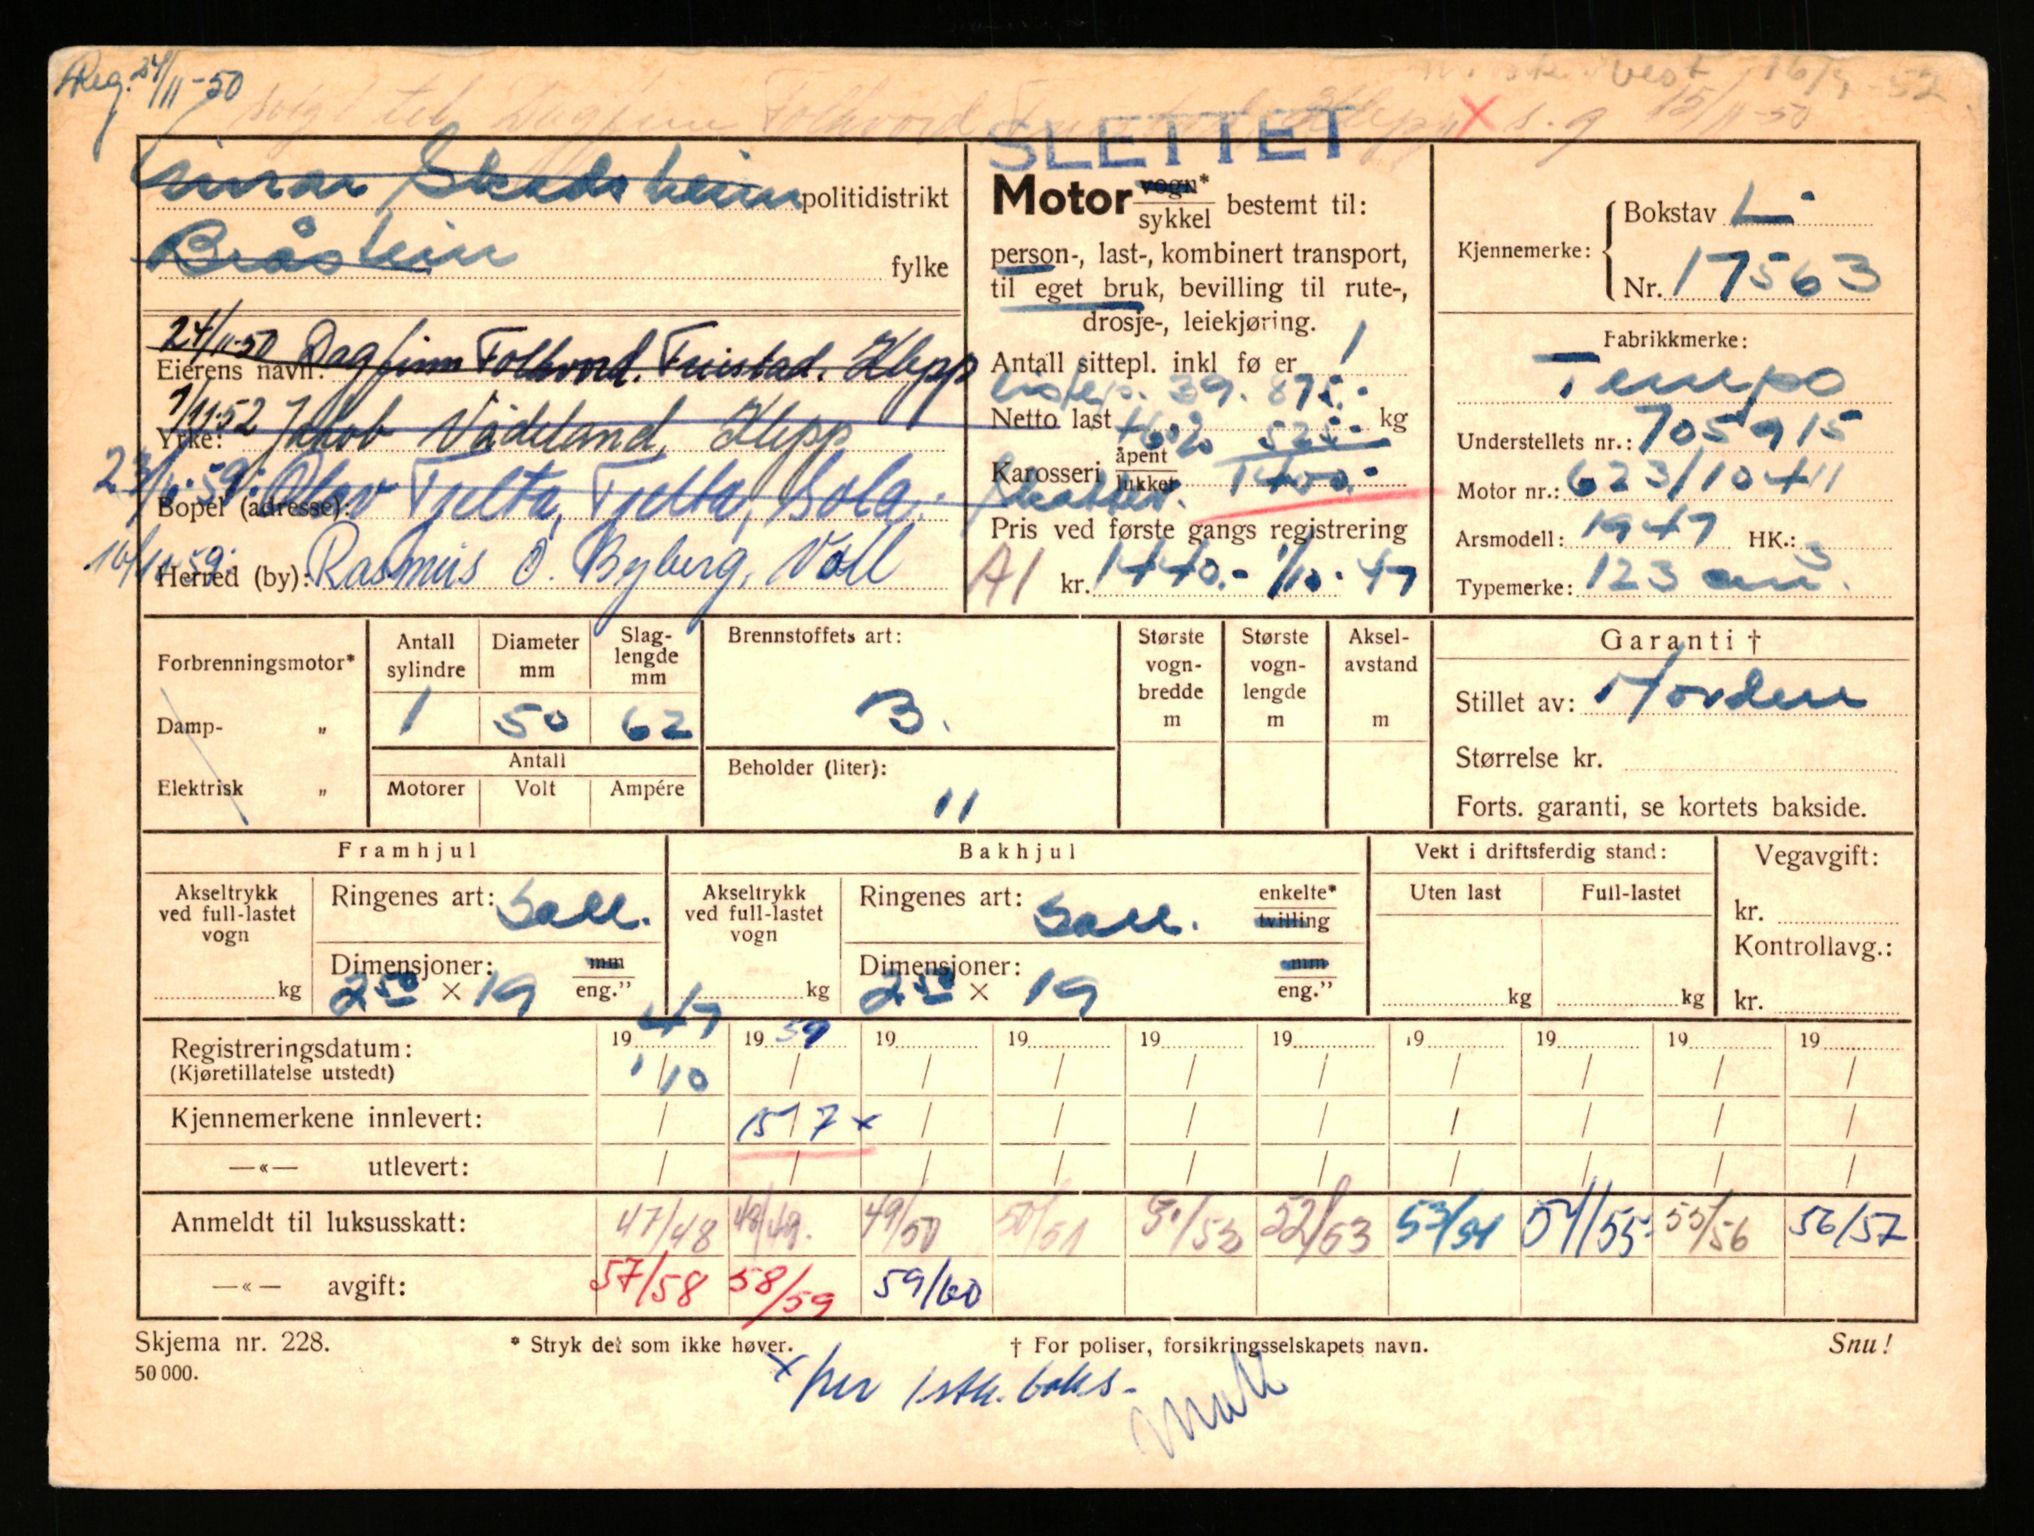 Reg. 24/11-50
solgt til Dagfinn Folkvord Friestad, Klepp X s.g 15/11-50
vest 16/4-52
SLETTET
Einar Skadsheim politidistrikt
Bråstein fylke
24/11-50 Dagfinn Folkvord. Friestad. Klepp
Eierens navn:
1/11-52 Jakob Vådeland, Klepp
Yrke:
Olav Tjelta, Tjelta, Sola.
Bopel (adresse):
10/11-59. Rasmus O. Byberg, Voll
Herred (by):
Motor vogn* / sykkel bestemt til:
person-, last-, kombinert transport,
til eget bruk, bevilling til rute-,
drosje-, leiekjøring.
Antall sittepl. inkl fø er 1
39. 875.-
Netto last 60% 525.- kg
Karosseri åpent / lukket 1400.-
Pris ved første gangs registrering
A1 kr. 1440.- 1/10-47
Kjennemerke: Bokstav L-
Nr. 17563
Fabrikkmerke:
Tempo
Understellets nr.: 705915
Motor nr.: 623/10411
Arsmodell: 1947 HK.: 3
Typemerke: 123 cm³.
Forbrenningsmotor*
Damp- „
Elektrisk „
Antall sylindre 1
Diameter mm 50
Slag-lengde mm 62
Antall
Motorer Volt Ampére
Brennstoffets art:
B.
Beholder (liter):
11
Største vogn-bredde m
Største vogn-lengde m
Aksel-avstand m
Garanti †
Stillet av: Norden
Størrelse kr.
Forts. garanti, se kortets bakside.
Framhjul
Akseltrykk ved full-lastet vogn
kg
Ringenes art: Ball.
Dimensjoner: mm / eng.”
2.50 × 19
Bakhjul
Akseltrykk ved full-lastet vogn
kg
Ringenes art: Ball. enkelte* / tvilling
Dimensjoner: mm / eng.”
2.50 × 19
Vekt i driftsferdig stand:
Uten last Full-lastet
kg kg
Vegavgift:
kr.
Kontrollavg.:
kr.
Registreringsdatum: 1947 1959 19 19 19 19 19 19 19 19
(Kjøretillatelse utstedt) 1/10 / / / / / / / / /
Kjennemerkene innlevert: / 15/7 x / / / / / / / /
—«— utlevert: / / / / / / / / / /
Anmeldt til luksusskatt: 47/48 48/49. 49/50 50/51 52/53 53/54 54/55 55/56 56/57
—«— avgift: 57/58 58/59 59/60
Skjema nr. 228. * Stryk det som ikke høver. † For poliser, forsikringsselskapets navn. Snu!
50 000.
x her 1 stk.